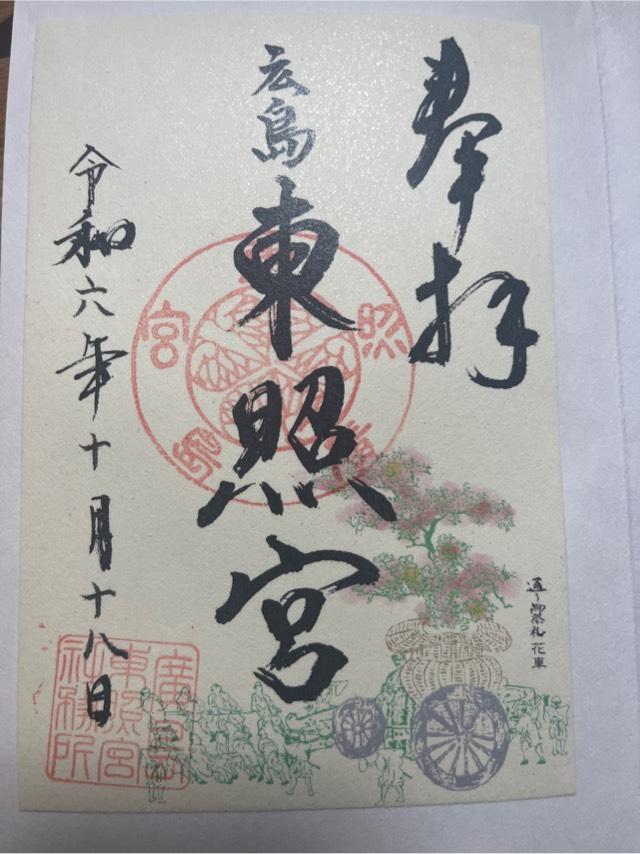 奉拝
広島
東照宮
令和六年十月十八日
通り御祭礼 花車
廣島
東照宮
社務所